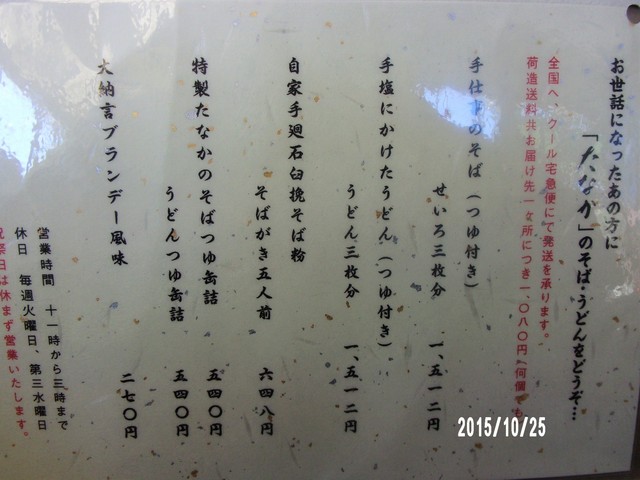 お世話になったあの方に
「たなか」のそば・うどんをどうぞ…
全国へ、クール宅急便にて発送を承ります。
荷造送料共お届け先一ヶ所につき一、〇八〇円（何個でも
手仕事のそば（つゆ付き）
せいろ三枚分　一、五一二円
手塩にかけたうどん（つゆ付き）
うどん三枚分　一、五一二円
自家手廻石臼挽そば粉
そばがき五人前　六四八円
特製たなかのそばつゆ缶詰　五四〇円
うどんつゆ缶詰　五四〇円
大納言ブランデー風味　二七〇円
営業時間　十一時から三時まで
休日　毎週火曜日、第三水曜日
祝祭日は休まず営業いたします。
2015/10/25